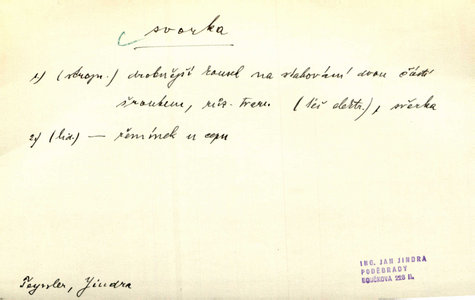 svorka
1) (strojn.) drobnější kousek na stahování dvou částí
šroubem, růz. tvaru (též elektr.), svěrka
2) (lid.) — řemínek u cepu
ING. JAN JINDRA
PODĚBRADY
BOUČKOVA 228 II.
Teysler, Jindra